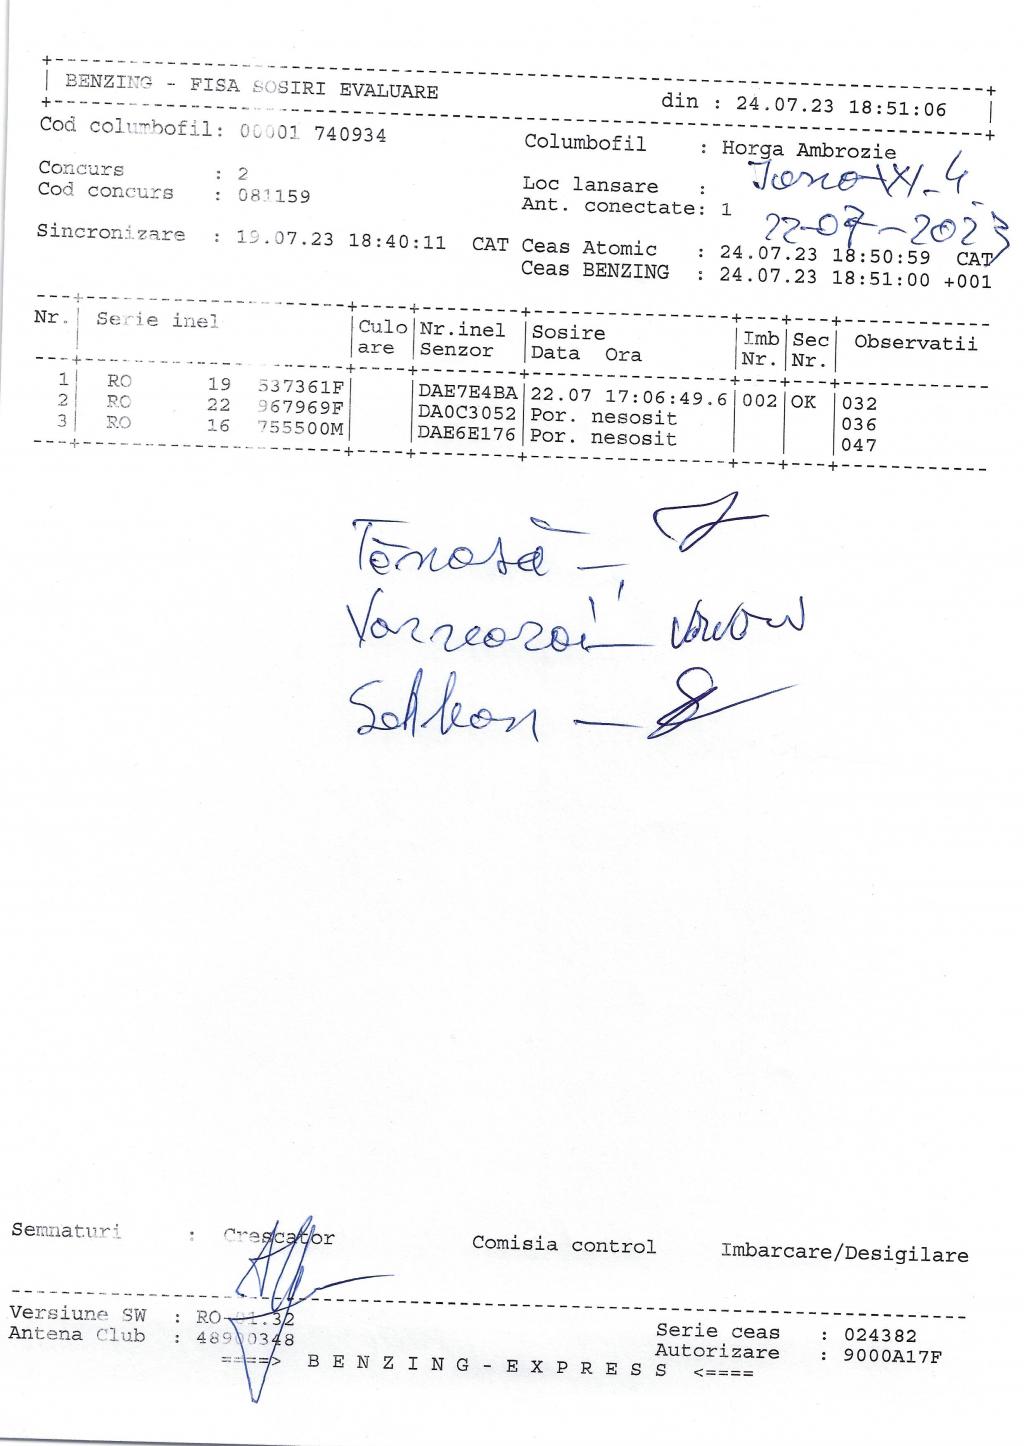 BENZING - FISA SOSIRI EVALUARE din : 24.07.23 18:51:06
Cod columbofil: 00001 740934 Columbofil : Horga Ambrozie
Concurs : 2 Loc lansare :
Cod concurs : 081159 Ant. conectate: 1
22-07-2023
Sincronizare : 19.07.23 18:40:11 CAT Ceas Atomic : 24.07.23 18:50:59 CAT
Ceas BENZING : 24.07.23 18:51:00 +001
Nr. Serie inel Culo Nr.inel Sosire Imb Sec Observatii
are Senzor Data Ora Nr. Nr.
1 RO 19 537361F DAE7E4BA 22.07 17:06:49.6 002 OK 032
2 RO 22 967969F DA0C3052 Por. nesosit 036
3 RO 16 755500M DAE6E176 Por. nesosit 047
Semnaturi : Crescator Comisia control Imbarcare/Desigilare
Versiune SW : RO-01.32 Serie ceas : 024382
Antena Club : 48900348 Autorizare : 9000A17F
====> B E N Z I N G - E X P R E S S <====